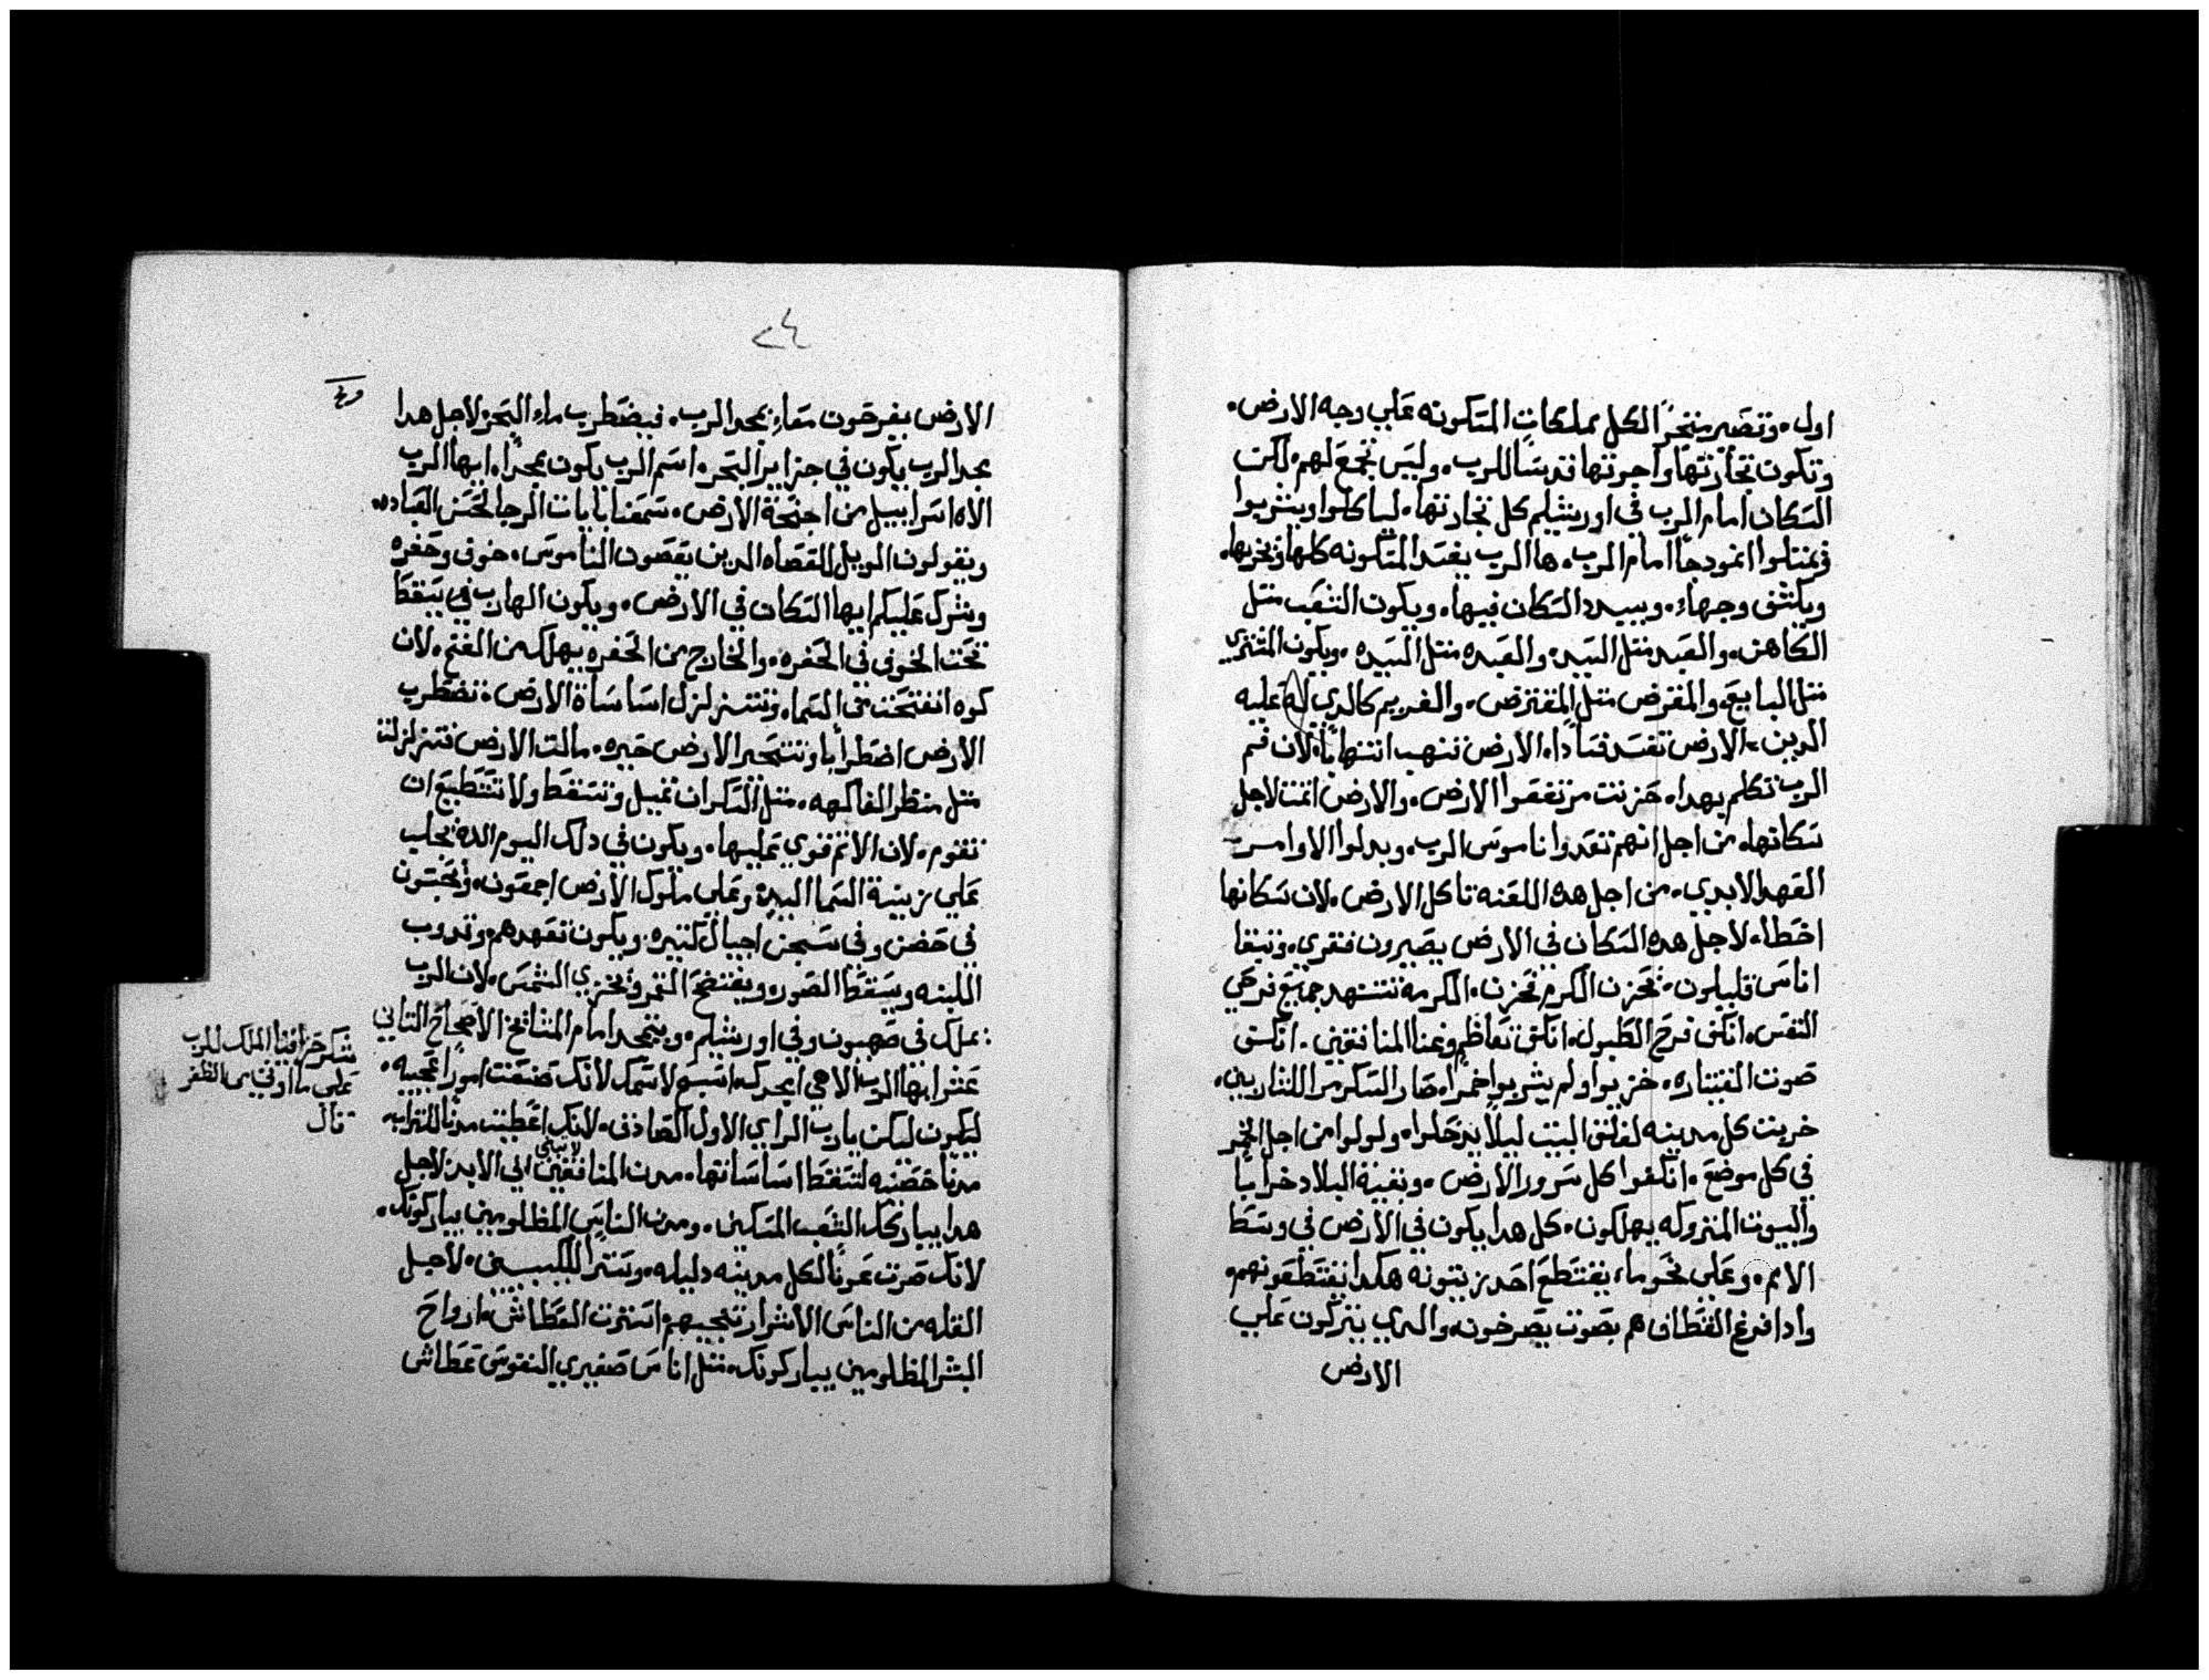 اول. وتصير متجرًا لكل مملكات المسكونه علي وجه الارض.
وتكون تجارتها واجرتها قدسًا للرب. وليس تجمع لهم. لكن
السكان امام الرب في اورشليم كل تجارتها. لياكلوا ويشربوا
ويمتلوا انمودجًا امام الرب. ها الرب يفسد المسكونه كلها ويخربها.
ويكشف وجهها. ويبيدد السكان فيها. ويكون الشعب متل
الكاهن. والعبد متل السيد. والعبده متل السيده. ويكون المشتري
متل البايع. والمقرض متل المقترض. والغريم كالدي له عليه
الدين. الارض تفسد فسادًا. الارض تنهب انتهابًا. لان فم
الرب تكلم بهدا. حزنت مرتفعوا الارض. والارض اتمت لاجل
سكانها. من اجل انهم تعدوا ناموس الرب. وبدلوا الاوامر
العهد الابدي. من اجل هده اللعنه تاكل الارض. لان سكانها
اخطأ. لاجل هده السكان في الارض يصيرون فقري. وتبقا
اناس قليلون. تحزن الكرم تحزن. الكرمة تتنهد جميع فرحي
النفس. انكف فرح الطبول. انكف تعاظم وغنا المنافقين. انكف
صوت القيتاره. خزيوا ولم يشربوا خمرًا. صار السكر مرا للشاربين.
خربت كل مدينه لغلق البيت ليلا يدخلوا. ولولوا من اجل الخمر
في كل موضع. انكفوا كل سرور الارض. وبقية البلاد خرابًا
والبيوت المتروكه يهلكون. كل هدا يكون في الارض في وسط
الامم. وعلي نحو ما يقتطع احد زيتونه هكدا يقتطعونهم.
وادا فرغ القطاف هم بصوت يصرخون. والدي يتركون علي
الارض
٢٤
الارض يفرحون معًا بمجد الرب. فيضطرب ماء البحر لاجل هدا
مجد الرب يكون في جزاير البحر. اسم الرب يكون ممجدًا. ايها الرب
الاه اسراييل من اجنحة الارض. سمعنا بايات الرجا لحسن العباده
ويقولون الويل للعصاه الدين يعصون الناموس. خوف وحفره
وشرك عليكم ايها السكان في الارض. ويكون الهارب في يسقط
تحت الخوف في الحفره. والخارج من الحفره يهلك من الفخ. لان
كوه انفتحت في السما. وتتزلزل اساسات الارض. تضطرب
الارض اضطرابا وتتحير الارض حيره. مالت الارض فتزلزلت
متل منظر الفاكهه. متل السكران تميل وتسقط ولا تستطيع ان
تقوم. لان الاتم قوي عليها. ويكون في دلك اليوم الله يجلب
علي زينة السما اليد وعلي ملوك الارض اجمعون. ويحبسون
في حصن وفي سجن اجيال كتيره. ويكون تعهدهم. وتدوب
اللبنه ويسقط الصور. ويفتضح القمر ويخزي الشمس. لان الرب
يملك في صهيون وفي اورشليم. ويتمجد امام المشايخ الاصحاح التاني
شكر حزقيا الملك للرب
علي ما اوتي من الظفر
قال
ايها الرب الاهي امجدك. اسبح لاسمك لانك صنعت امورًا عجيبه.
ليكون ليكن يا رب الراي الاول الصادق. لانك اعطيت مدنًا للتراب
مدنًا حصينه لتسقط اساساتها. مدن المنافقين لا تبني الي الابد. لاجل
هدا يباركك الشعب المسكين. ومدن الناس المظلومين يباركونك.
لانك صرت عونًا لكل مدينه دليله. وسترا للكيبين. لاجل
القله من الناس الاشرار تنجيهم. استرت العطاش. ارواح
البشر المظلومين يباركونك. متل اناس صغيري النفوس عطاش